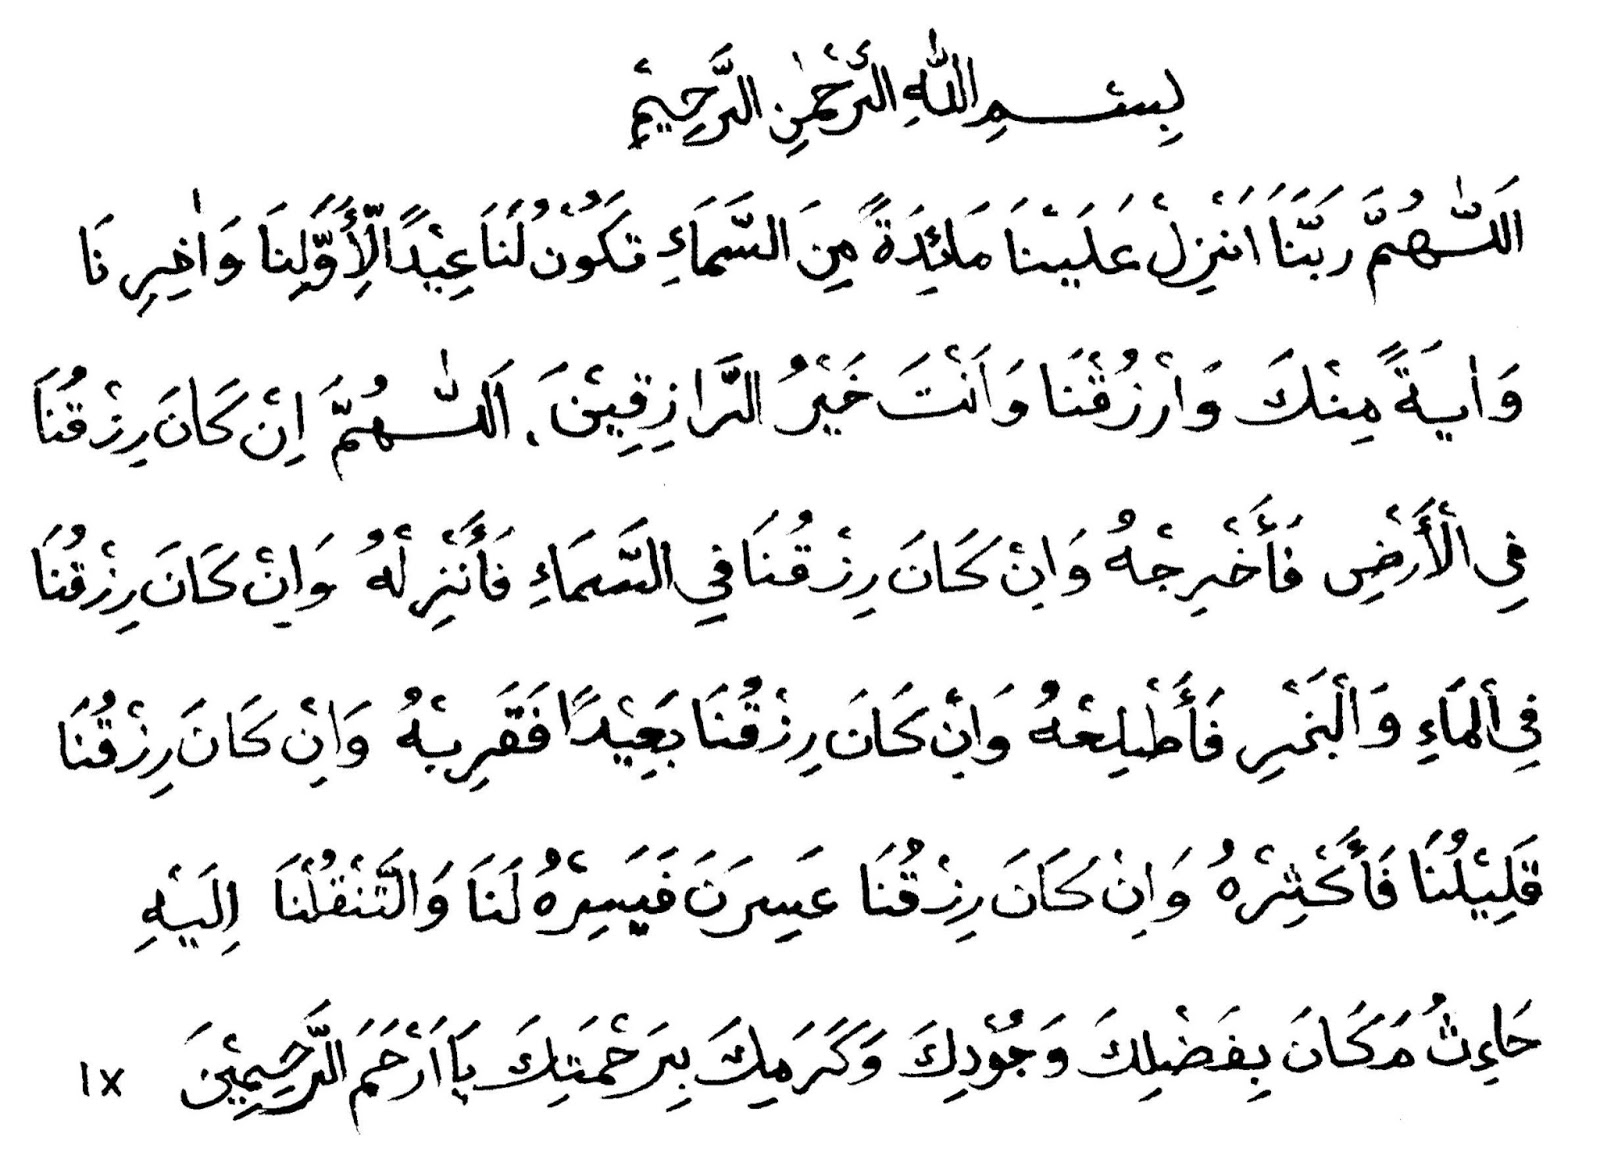 بِسْمِ اللّٰهِ الرَّحْمٰنِ الرَّحِيْمِ
اَللّٰهُمَّ رَبَّنَا اَنْزِلْ عَلَيْنَا مَائِدَةً مِنَ السَّمَاءِ تَكُوْنُ لَنَا عِيْدًا لِّأَوَّلِنَا وَاٰخِرِنَا
وَاٰيَةً مِنْكَ وَارْزُقْنَا وَاَنْتَ خَيْرُ الرَّازِقِيْنَ. اَللّٰهُمَّ اِنْ كَانَ رِزْقُنَا
فِى الْأَرْضِ فَأَخْرِجْهُ وَاِنْ كَانَ رِزْقُنَا فِي السَّمَاءِ فَأَنْزِلْهُ وَاِنْ كَانَ رِزْقُنَا
فِي الْمَاءِ وَالْبَحْرِ فَأَطْلِعْهُ وَاِنْ كَانَ رِزْقُنَا بَعِيْدًا فَقَرِبْهُ وَاِنْ كَانَ رِزْقُنَا
قَلِيْلُنَا فَأَكْثِرْهُ وَاِنْ كَانَ رِزْقُنَا عَسِرَنَ فَيَسِرْهُ لَنَا وَالتَّنْقُلْنَا اِلَيْهِ
حَاءِثُ مَكَانَ بِفَضْلِكَ وَجُوْدِكَ وَكَرَمِكَ بِرَحْمَتِكَ يَا اَرْحَمَ الرَّحِمِيْنَ ١x